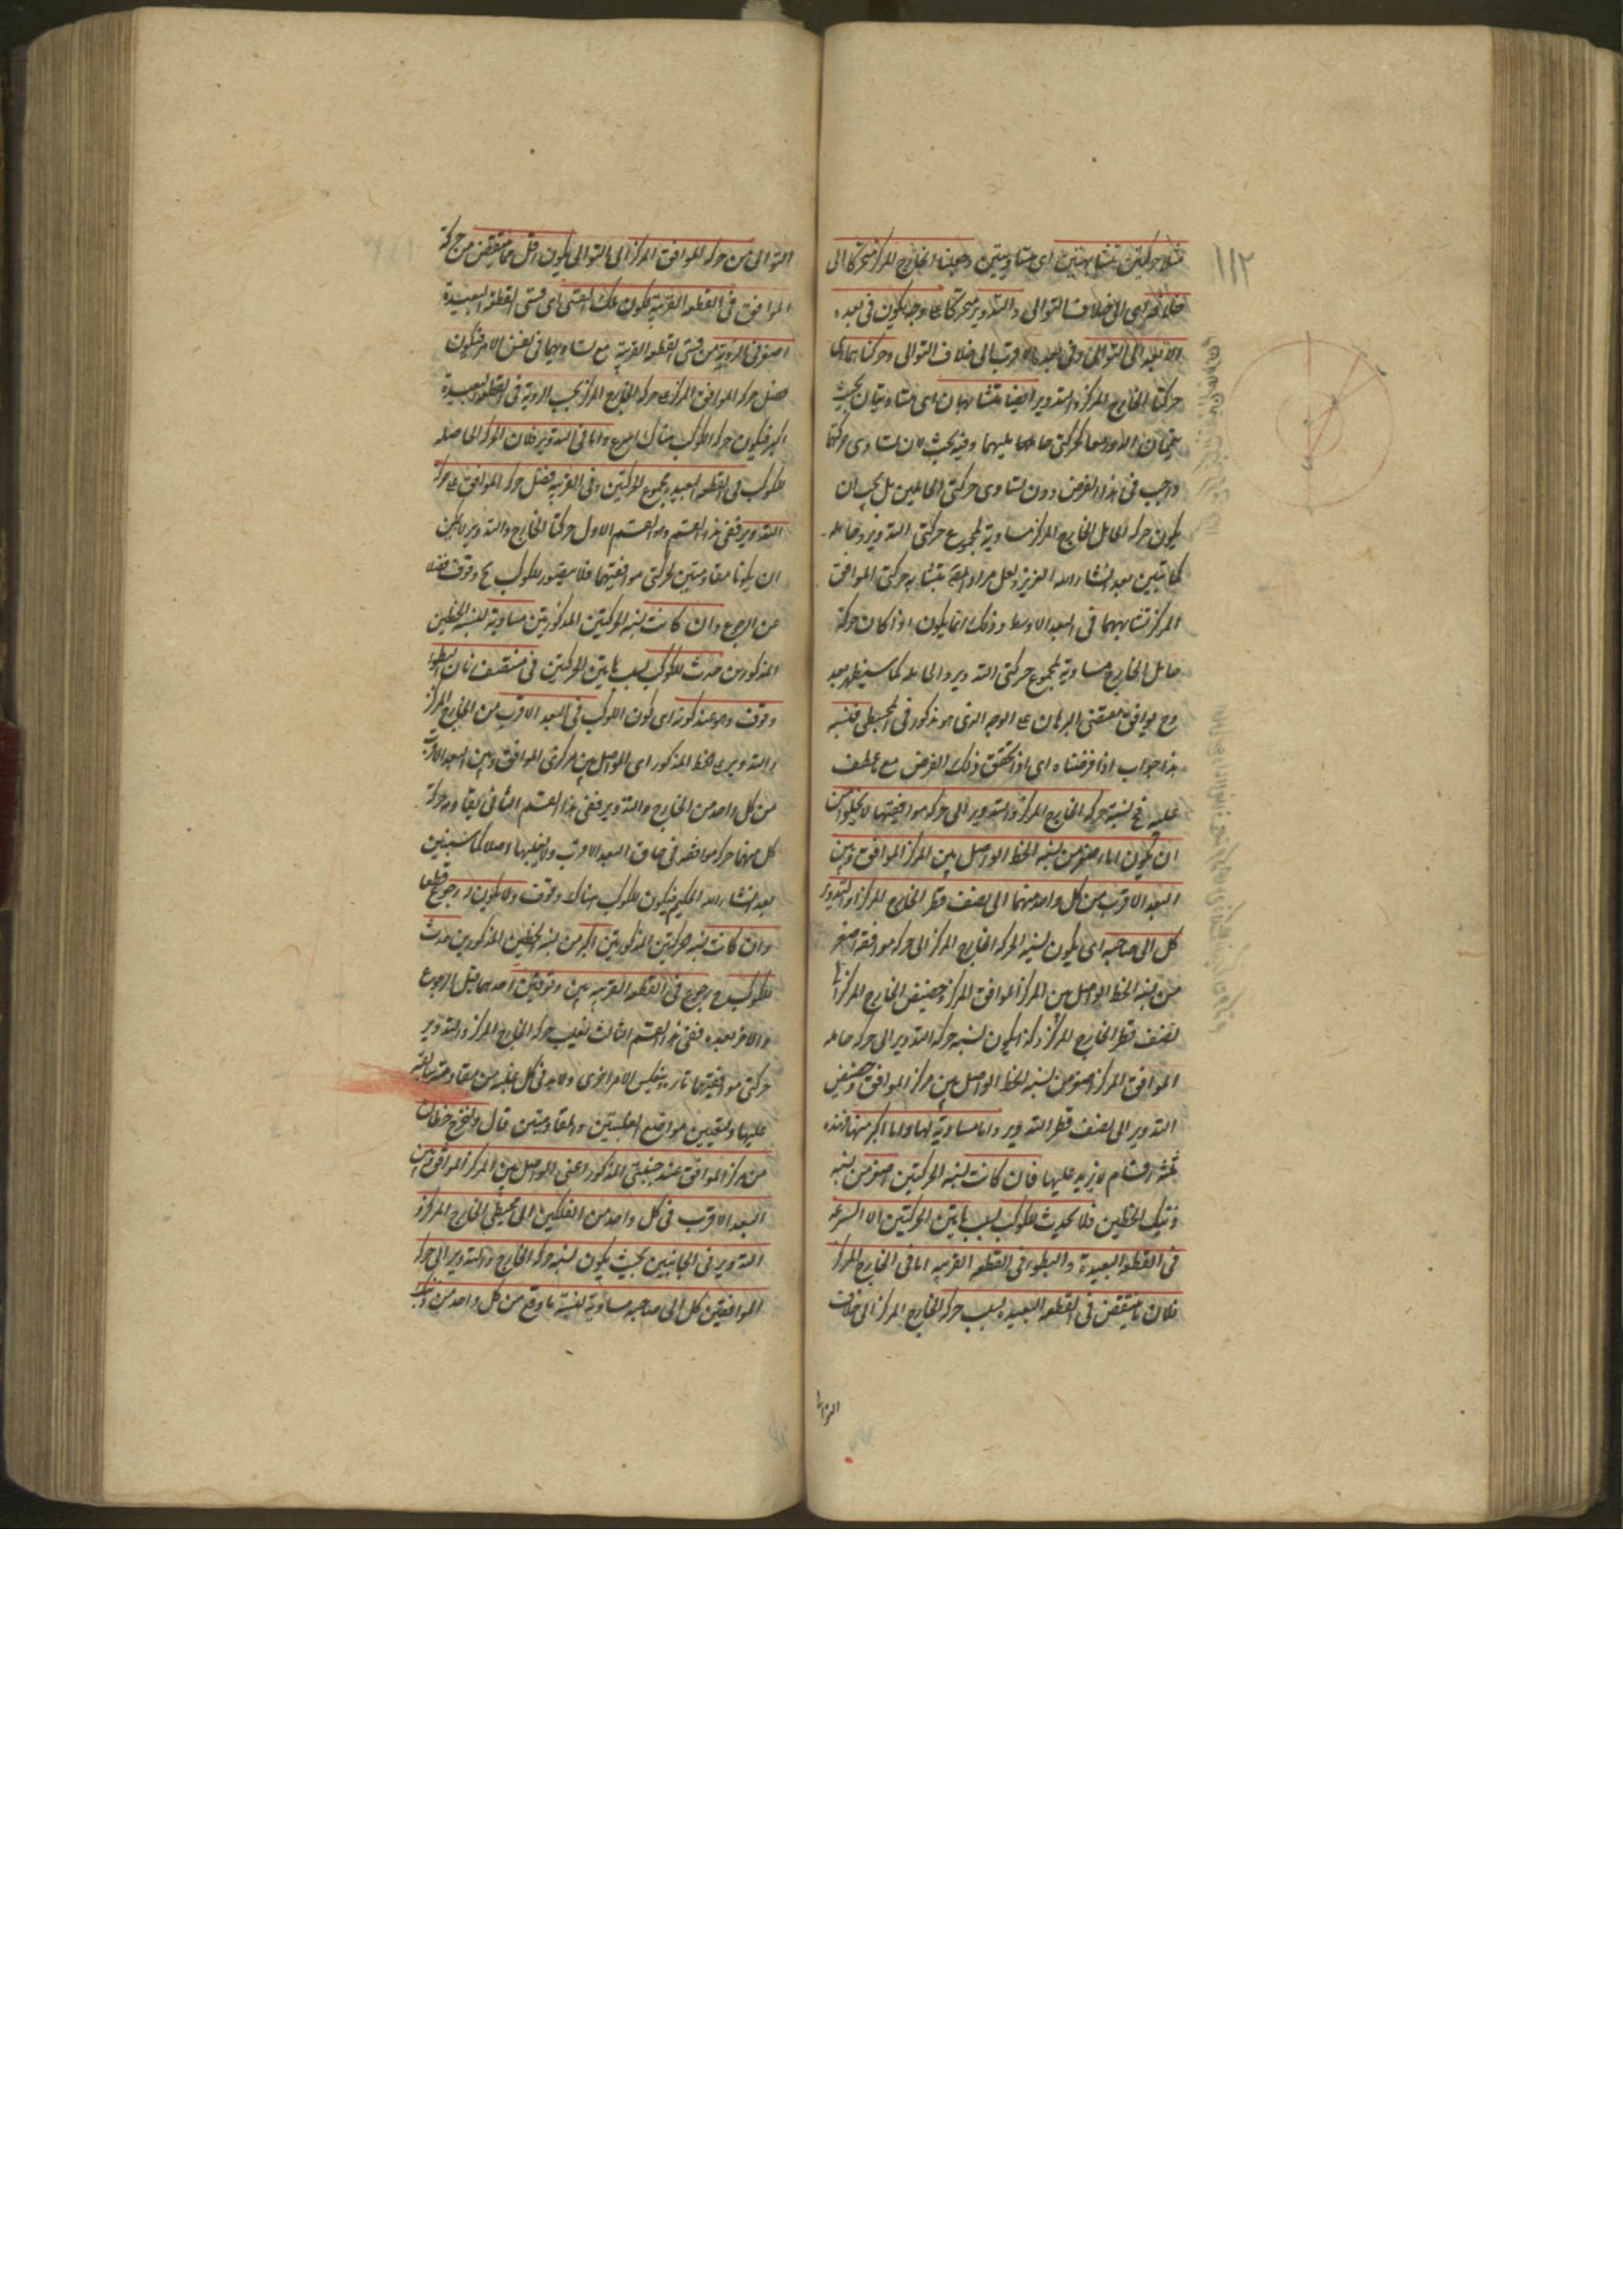 ١١٢
مثلا حركتين متشابهتين اى متساويتين وجعلنا الخارج المركز متحركا الى
خلافه اى الى خلاف التوالى والتدوير متحركا على وجه يكون فى بعده
الابعد الى التوالى وفى بعده الاقرب الى خلاف التوالى وحركتاهما اى
حركتا الخارج المركز والتدوير ايضا متشابهتان اى متساويتان بحيث
حركتى حامليهما وفيه بحث لان تساوى حركتيهما
واجب فى هذا الفرض دون تساوى حركتى الحاملين بل يجب ان
يكون حركة الحامل الخارج المركز مساوية لمجموع حركتى التدوير وحامله
كما تبين بعد انشاء الله العزيز ولعل مراد المص بتشابه حركتى الموافق
المركز تشابههما فى البعد الاوسط وذلك انما يكون اذا كان حركة
حامل الخارج مساوية لمجموع حركتى التدوير والحامل كما سيظهر بعد
وح يوافق مقتضى البرهان على الوجه الذى هو مذكور فى المجسطى فنسبة
هذا جواب اذا فرضناه اى اذا تحقق ذلك الفرض مع ما عطف
عليه فح نسبة حركة الخارج المركز والتدوير الى حركة موافقيهما لا يخلو من
ان يكون اما اصغر من نسبة الخط الواصل بين المركز الموافق وبين
البعد الاقرب من كل واحد منهما الى نصف قطر الخارج المركز او التدوير
كل الى صاحبه اى يكون نسبة الحركة الخارج المركز الى حركة موافقه اصغر
من نسبة الخط الواصل بين المركز الموافق المركز وحضيض الخارج المركز الى
نصف قطر الخارج المركز وكذا يكون نسبة حركة التدوير الى حركة حامله
الموافق المركز اصغر من نسبة الخط الواصل بين مركز الموافق وحضيض
التدوير الى نصف قطر التدوير واما مساوية لها واما اكبر منها فهذه
ثلثة اقسام لا يزيد عليها فان كانت نسبة الحركتين اصغر من نسبة
ذينك الخطين فلا يحدث للكوكب بسبب هاتين الحركتين الا السرعة
فى القطعة البعيدة والبطوء فى القطعة القريبة اما فى الخارج المركز
فلان ما ينتقص فى القطعة البعيدة بسبب حركة الخارج المركز الى خلاف
التوالى من حركة الموافق المركز الى التوالى يكون اقل مما ينتقص من حركة
الموافق فى القطعة القريبة لكون تلك القسى اى قسى القطعة البعيدة
اصغر فى الرؤية من قسى القطعة القريبة مع تساويهما فى نفس الامر فيكون
فضل حركة الموافق المركز على حركة الخارج المركز بحسب الرؤية فى القطعة البعيدة
اكبر فيكون حركة الكوكب هناك اسرع واما فى التدوير فلان الحركة الحاصلة
للكوكب فى القطعة البعيدة مجموع الحركتين وفى القريبة فضل حركة الموافق على حركة
التدوير ففى هذا القسم وهو القسم الاول حركتا الخارج والتدوير لا يمكن
ان يكونا مقاومتين لحركتى موافقيهما فلا يتصور للكوكب ح وقوف فضلا
عن الرجوع وان كانت نسبة الحركتين المذكورتين مساوية لنسبة الخطين
المذكورين حدث للكوكب بسبب هاتين الحركتين فى منتصف زمان البطوء
وقوف وهو عند كونه اى كون الكوكب فى البعد الاقرب من الخارج المركز
والتدوير على الخط المذكور اى الواصل بين مركزى الموافق وبين البعد الاقرب
من كل واحد من الخارج والتدوير ففى هذا القسم الثانى يقاوم حركة
كل منهما حركة موافقه فى حاق البعد الاقرب ولا يغلبها اصلا كما سيتبين
بعد انشاء الله الحكيم فيكون للكوكب هناك وقوف ولا يكون له رجوع قطعا
وان كانت نسبة الحركتين المذكورتين اكبر من نسبة الخطين المذكورين حدث
للكوكب رجوع فى القطعة القريبة بين وقوفين احدهما قبل الرجوع
والاخر بعده ففى هذا القسم الثالث يغلب حركة الخارج المركز والتدوير
حركتى موافقيهما تارة وينعكس الامر اخرى ولابد فى كل غلبة من مقاومة سابقة
عليها ولتعيين مواضع الغلبتين والمقاومتين قال ولنخرج خطان
من مركز الموافق عند جنبتى المذكور اعنى الواصل بين المركز الموافق وبين
البعد الاقرب فى كل واحد من الفلكين الى محيطى الخارج المركز و
التدوير فى الجانبين بحيث يكون نسبة حركة الخارج والتدوير الى حركة
الموافقين كل الى صاحبه مساوية لنسبة ما وقع من كل واحد من ذينك